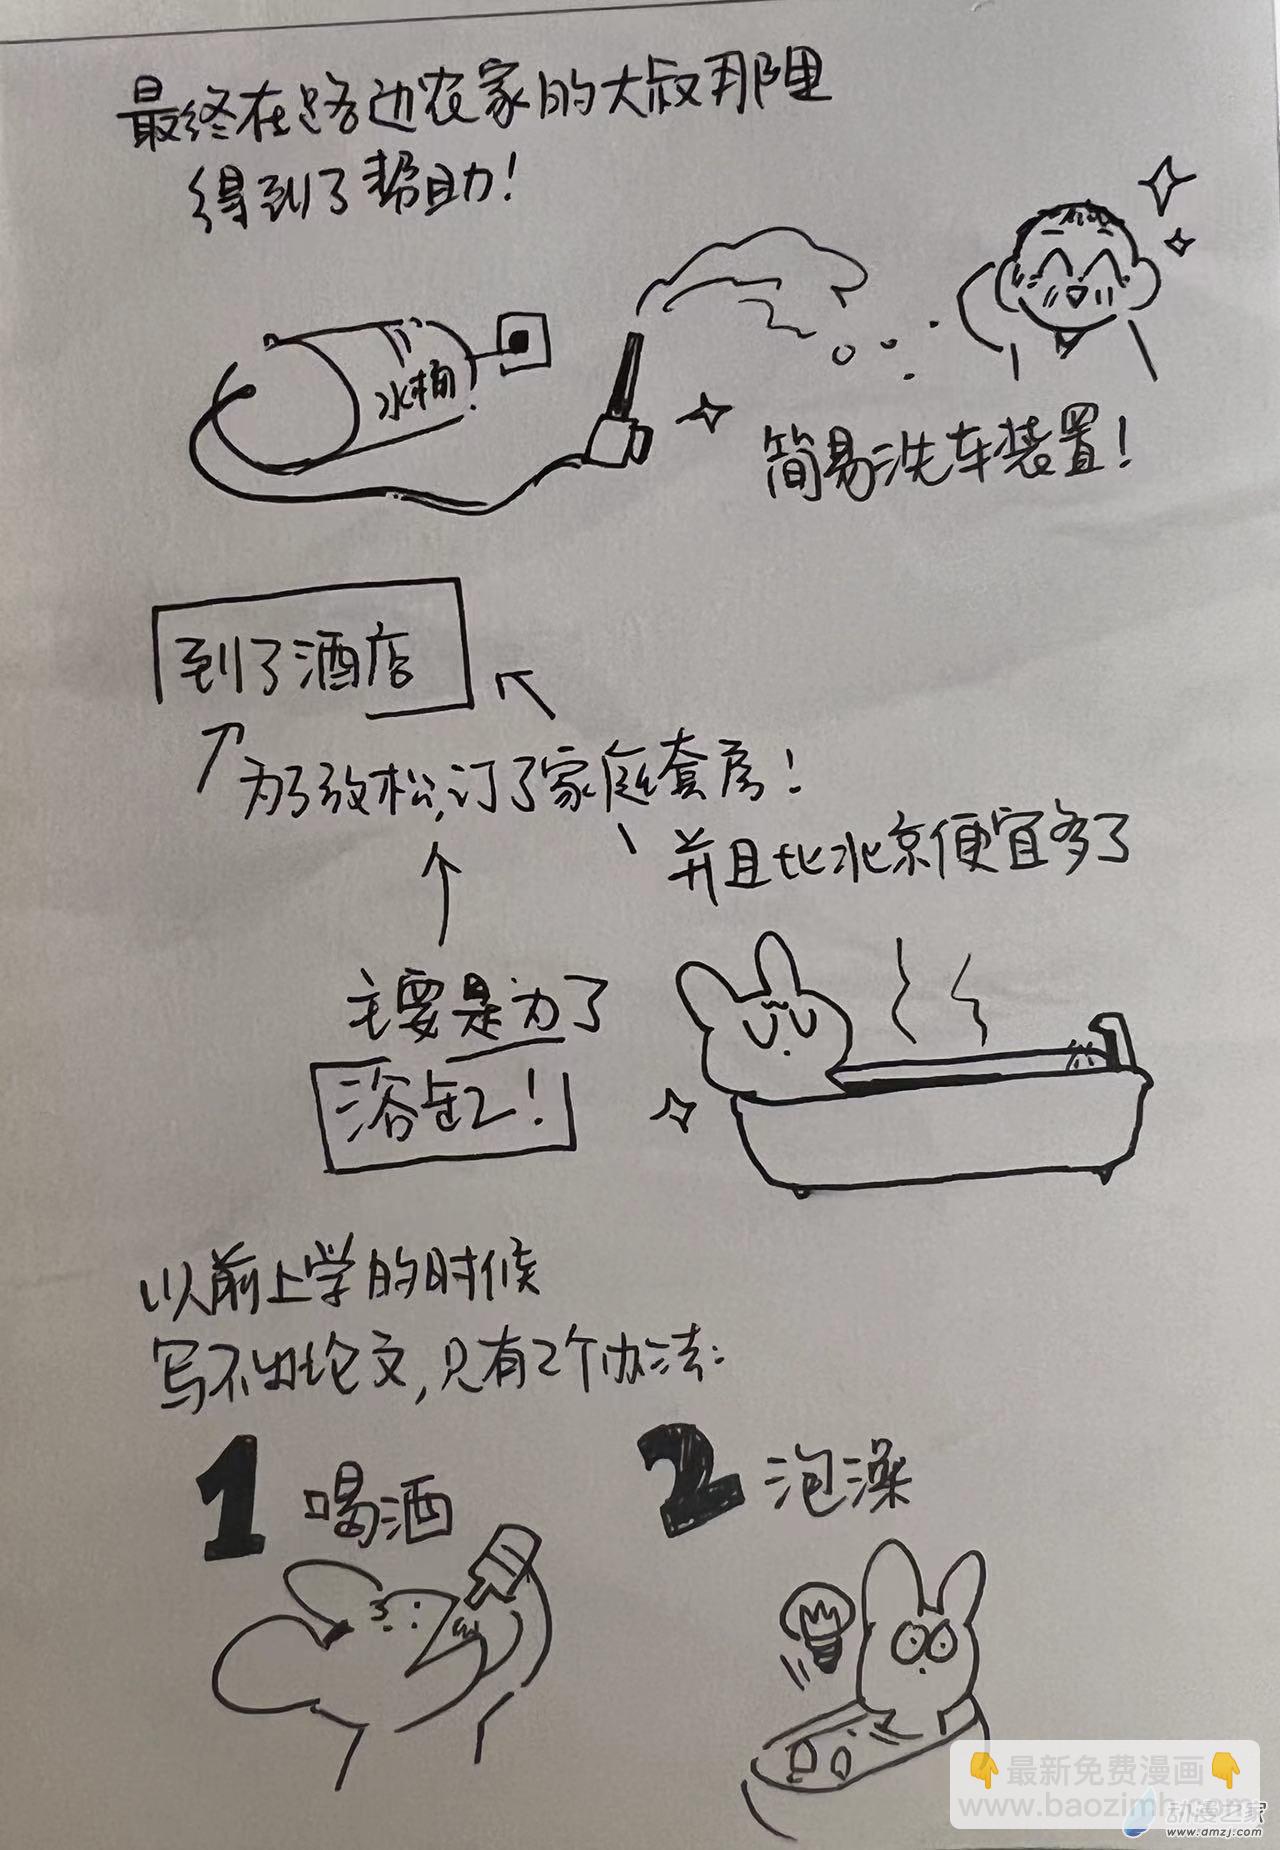 最终在路边农家的大叔那里
得到了帮助!
水桶
简易洗车装置!
到了酒店
为了放松,订了家庭套房!
并且比北京便宜多了
主要是为了
浴缸!
以前上学的时候
写不出论文,只有2个办法:
1 喝酒
2 泡澡
👇最新免费漫画👇
www.baozimh.com
动漫之家
www.dmzj.com